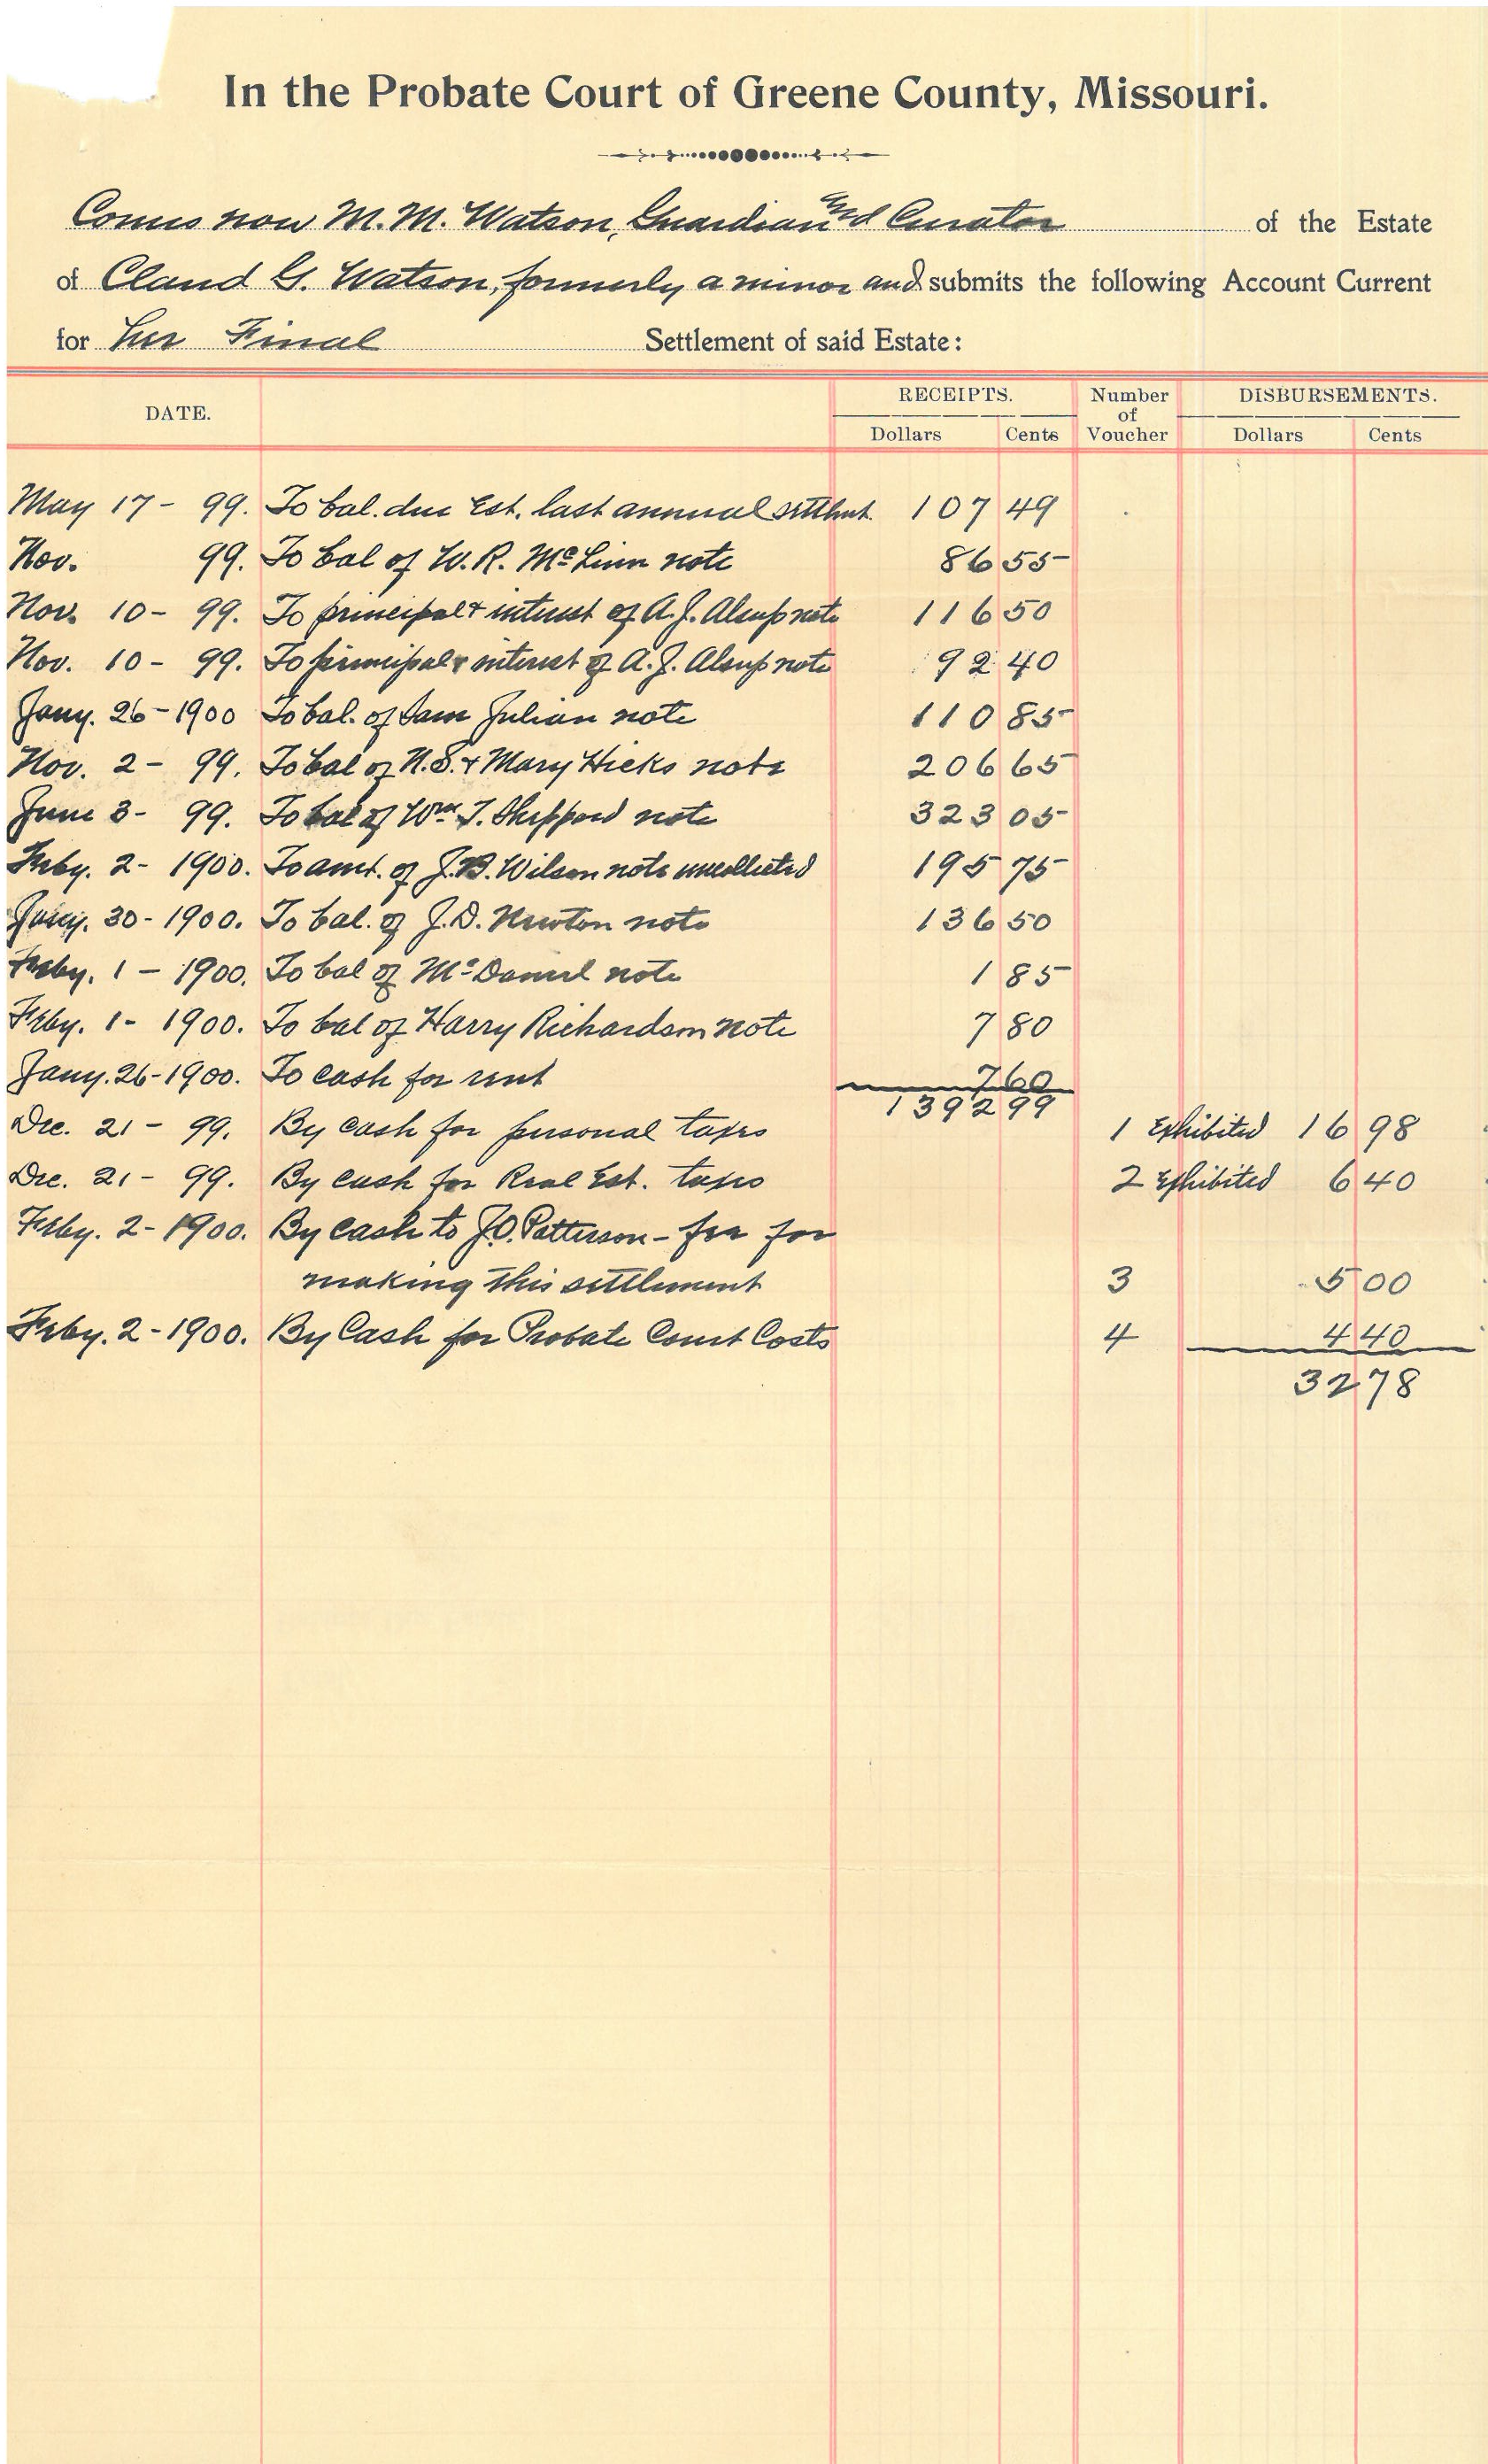 In the Probate Court of Greene County, Missouri.
Comes now M. M. Watson, Guardian and Curator of the Estate
of Claud G. Watson, formerly a minor and submits the following Account Current
for her Final Settlement of said Estate:
DATE. RECEIPTS. Number of Voucher DISBURSEMENTS.
Dollars Cents Dollars Cents
May 17 - 99. To bal. due Est. last annual settlmt. 107 49
Nov. 99. To bal of W. R. McLinn note 86 55
Nov. 10 - 99. To principal & interest of A. J. Alsup note 116 50
Nov. 10 - 99. To principal & interest of A. J. Alsup note 92 40
Jany. 26 - 1900 To bal. of Sam Julian note 110 85
Nov. 2 - 99. To bal of N. S. & Mary Hicks note 206 65
June 3 - 99. To bal of Wm. T. Sheppard note 323 05
Feby. 2 - 1900. To amt. of J. B. Wilson note uncollected 195 75
Jany. 30 - 1900. To bal. of J. D. Newton note 136 50
Feby. 1 - 1900. To bal of McDaniel note 1 85
Feby. 1 - 1900. To bal of Harry Richardson note 7 80
Jany. 26 - 1900. To cash for rent 7 60
1392 99
Dec. 21 - 99. By cash for personal taxes 1 Exhibited 16 98
Dec. 21 - 99. By cash for Real Est. taxes 2 Exhibited 6 40
Feby. 2 - 1900. By cash to J. O. Patterson - fee for
making this settlement 3 5 00
Feby. 2 - 1900. By Cash for Probate Court Costs 4 4 40
32 78